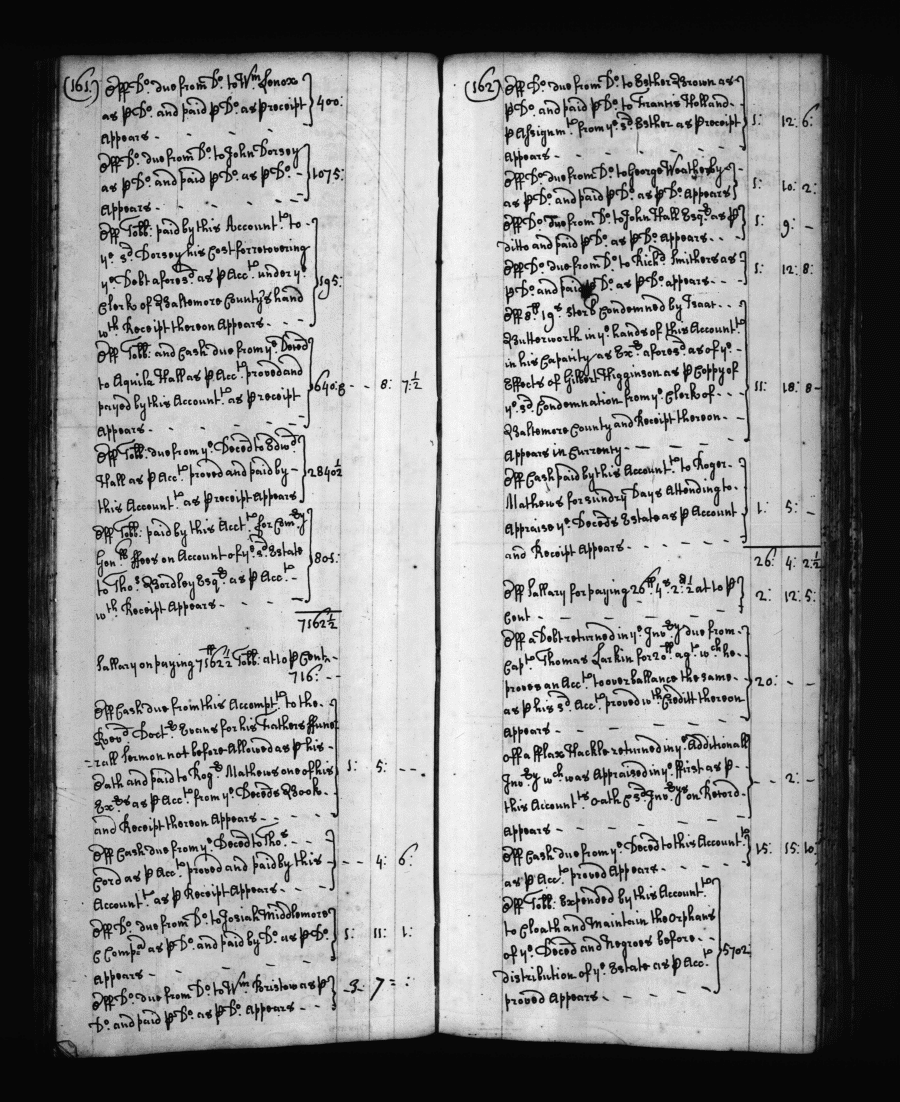 (161.) Off Do. due from Do. to Wm. Lenox
as P Do. and paid P Do. as P receipt 400:
Appears - - - -
Off Do. due from Do. to John Dorsey
as P Do. and paid P Do. as P Do. - 1075:
Appears - - - -
Off Tobb: paid by this Accountt. to -
ye. sd. Dorsey his Cost for recovering
ye. Debt aforesd. as P Acct. under ye. 195:
Clerk of Baltemore County's hand
wth. Receipt thereon Appears. - - -
Off Tobb: and Cash due from ye. Deced.
to Aquila Hall as P Acct. proved and 640:8 - - 8: 7:½
payed by this Accountt. as P receipt
Appears - - - -
Off Tobb: due from ye. Deced to Edwd.
Hall as P Acct. proved and paid by - 2840½
this Accountt. as P receipt Appears
Off Tobb: paid by this Acctt. for Comry.
Genlls. ffees on Account of ye. sd. Estate 805:
to Thos. Bordley Esqr. as P Acct. -
wth. Receipt Appears - - - -
7162½
Sallary on paying 7162½ Tobb: at 10 P Cent. -
716: - -
Off Cash due from this Accomptt. to the -
Revd. Doctr. Evans for his Fathers ffune
=rall Sermon not before Allowed as P his -
Oath and paid to Rogr. Mathews one of his 1: 5: - -
Exrs. as P Acct. from ye. Deceds Book -
and Receipt thereon Appears - - -
Off Cash due from ye. Deced to Thos. - -
Cord as P Acct. proved and paid by this - - - 4: 6:
Accountt. as P Receipt Appears - - -
Off Do. due from Do. to Josiah Middlemore
& Compa. as P Do. and paid by Do. as P Do. 1: 11: 1:
Appears - - - -
Off Do. due from Do. to Wm. Bristow as P 3- 7 = :
Do. and paid P Do. as P Do. Appears - - -
(162) Off Do. due from Do. to Esther Brown as
P Do. and paid P Do. to Francis Holland - 1: 12: 6:
P Assignmt. from ye. sd. Esther as P receipt
Appears - - - -
Off Do. due from Do. to George Weatherby 1: 10: 2:
as P Do. and paid P Do. as P Do. Appears
Off Do. Due from Do. to John Hall Esqr. as P 1: 9: -
ditto and paid P Do. as P Do. Appears - - -
Off Do. due from Do. to Richd. Smithers as 1: 12: 8:
P Do. and paid P Do. as P Do. appears - - -
Off 8ll. 19s. sterl. Condemned by Isaac - -
Butterworth in ye. hands of this Accountt.
in his Capacity as Exr. aforesd. as of ye. -
Effects of Gilbert Higginson as P Coppy of 11: 18: 8-
ye. sd. Condemnation from ye. Clerk of - - -
Baltemore County and Receipt thereon -
Appears in Currency - - - -
Off Cash paid by this Accountt. to Roger -
Mathews for sundry Days Attending to - 1: 5: -
Appraise ye. Deceds Estate as P Account
and Receipt Appears - - - -
26: 4: 2½
Off Sallary for paying 26ll 4s. 2:½ at 10 P 2: 12: 5:
Cent - - - - -
Off a Debt returned in ye. Invry due from -
Capt. Thomas Larkin for 20ll. agt. wch. he -
proves an Acct. to overballance the same - 20: - -
as P his sd. Acct. proved wth. Creditt thereon
Appears - - - -
off a fflax Hackle returned in ye. Additionall
Invry. wch. was Appraised in ye. ffirst as P - - 2: -
this Accountts. oath & sd. Invrys on Record -
Appears - - - -
Off Cash due from ye. Deced to this Accountt. 15: 15: 10
as P Acct. proved Appears - - - -
Off Tobb: Expended by this Accountt.
to Cloath and Maintain the orphans
of ye. Deced and Negroes before - - 5702
distribution of ye. Estate as P Acct.
proved Appears - - - -